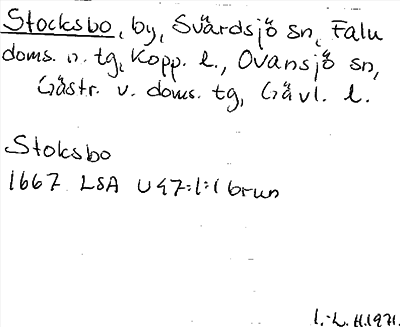 Stocksbo, by, Svärdsjö sn, Falu
doms. n. tg, Kopp. l., Ovansjö sn,
Gästr. v. doms. tg, Gävl. l.
Stoksbo
1667 LSA U47:1:1 brun
I.-L. H. 1971.